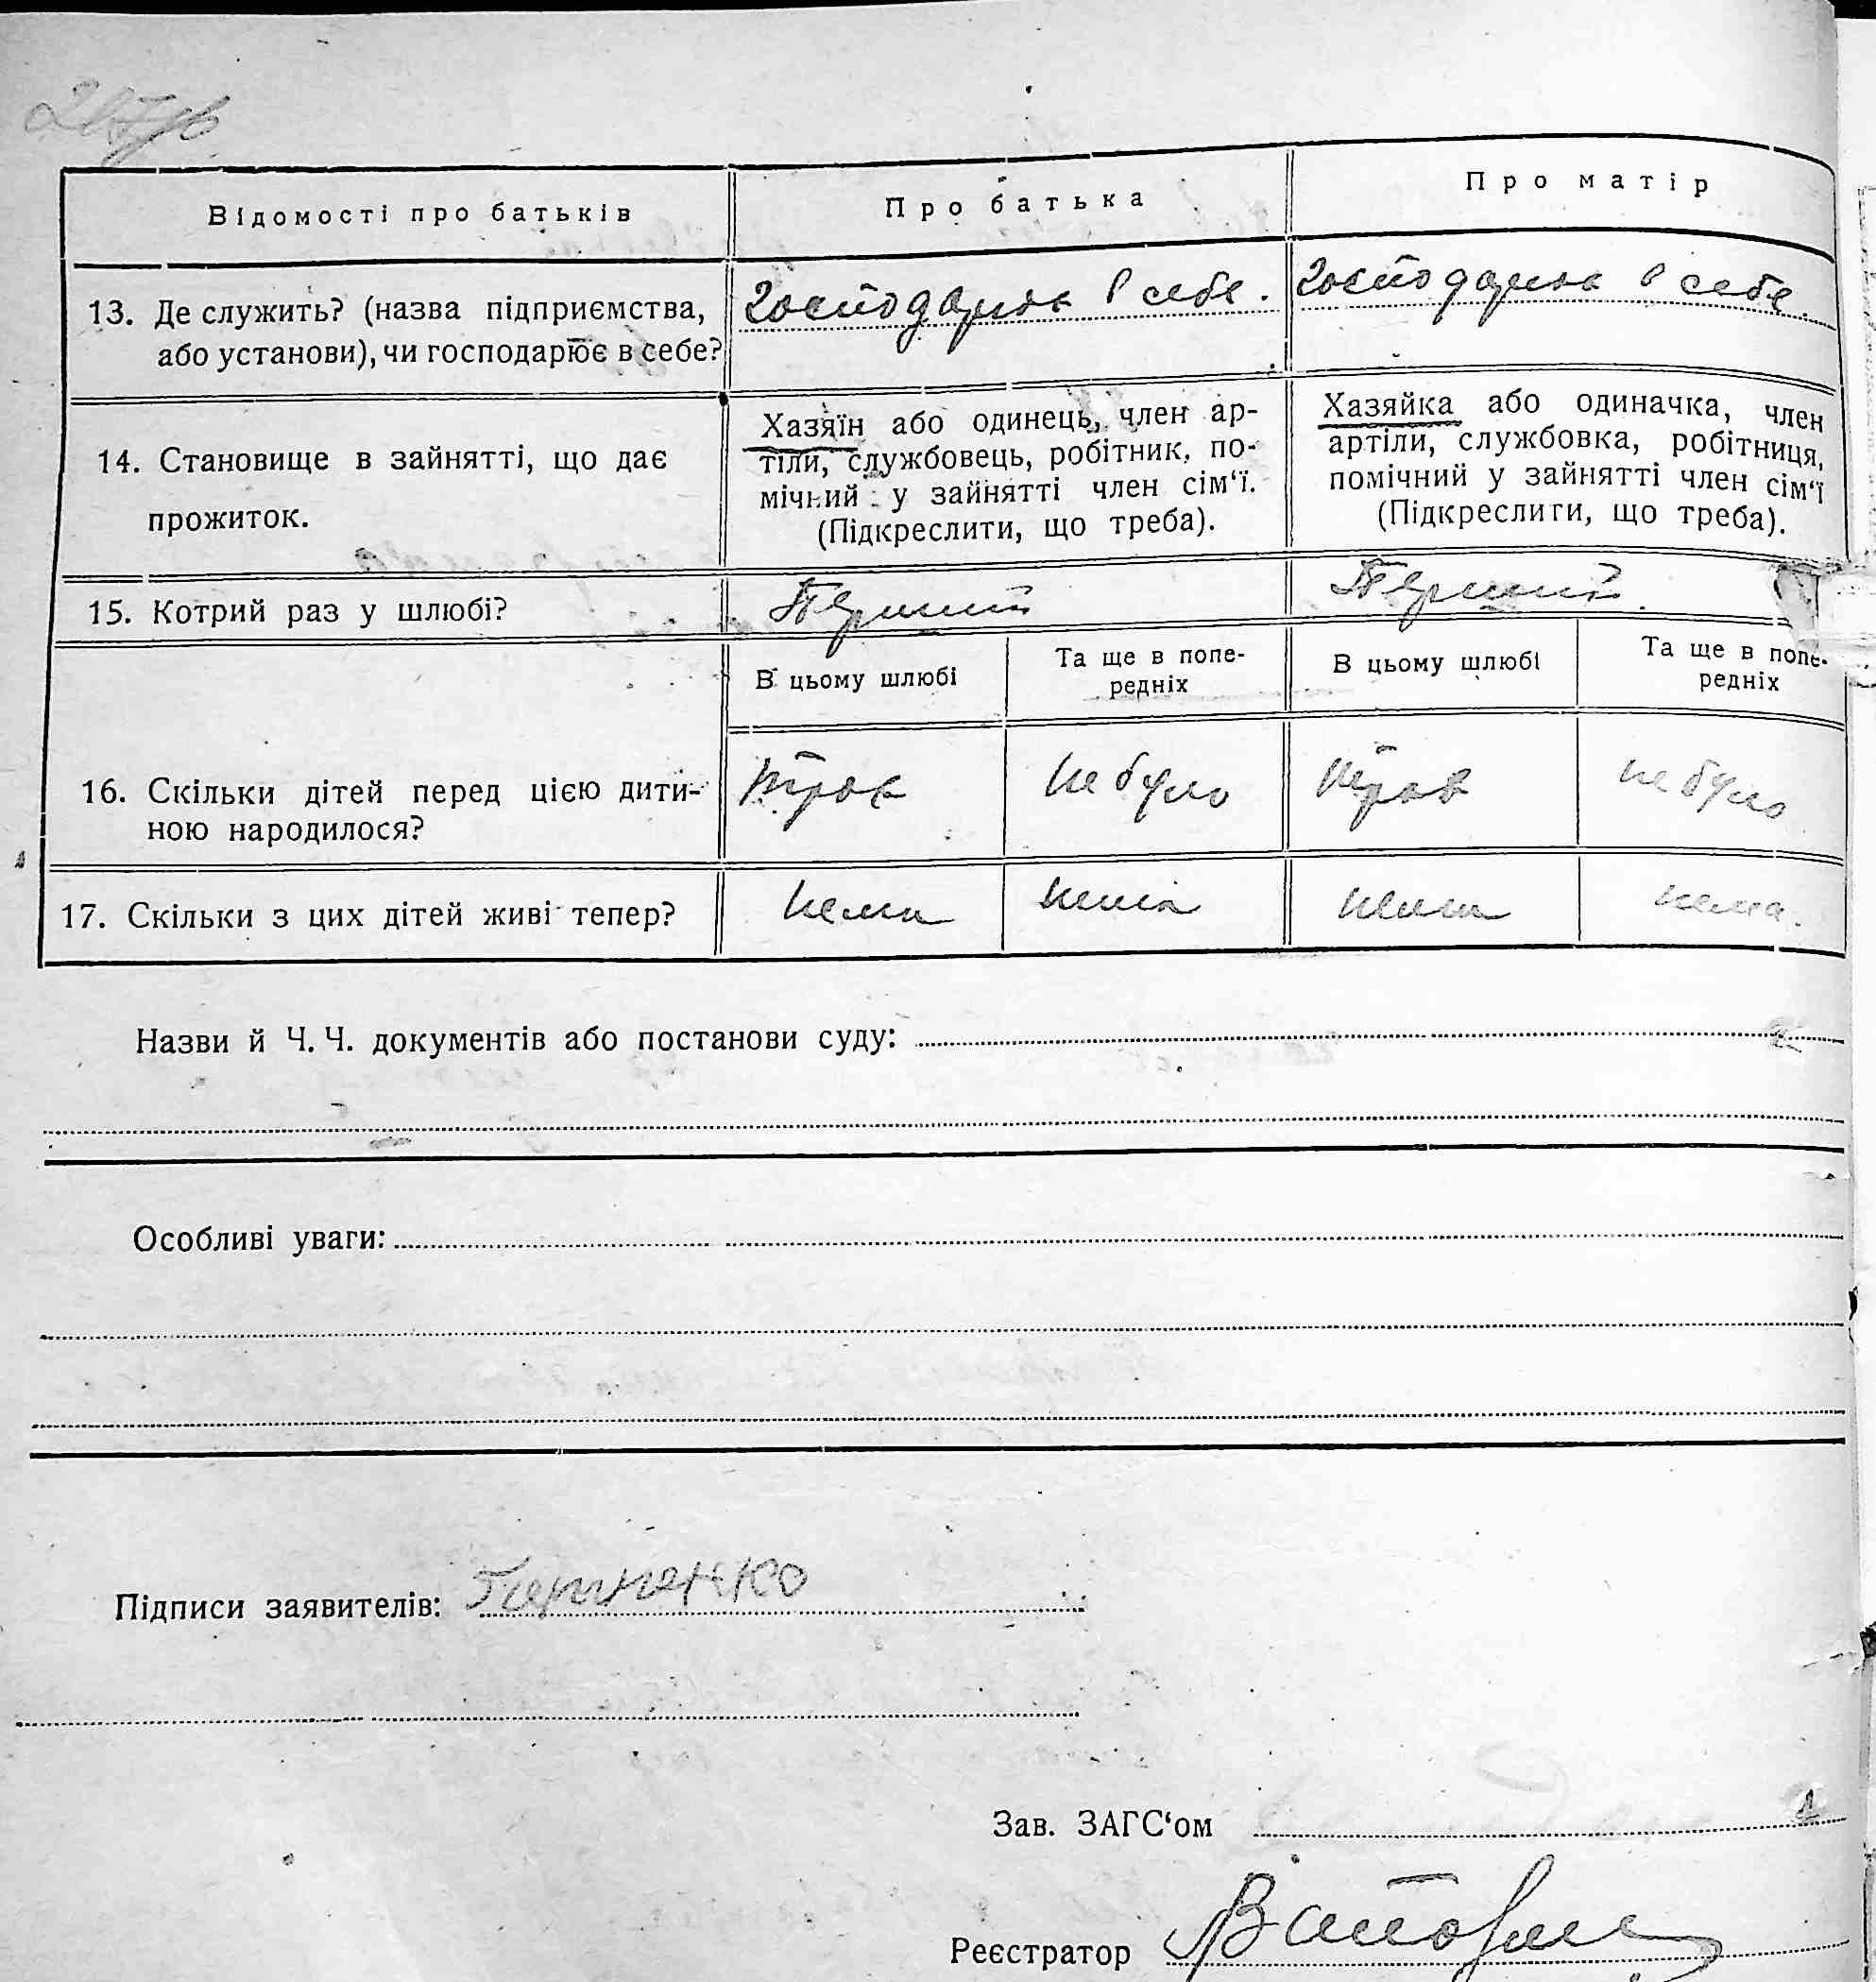 Відомості про батьків
Про батька
Про матір
13. Де служить? (назва підприємства,
або установи), чи господарює в себе?
в себе.
в себе.
14. Становище в зайнятті, що дає
прожиток.
Хазяїн або одинець, член ар-
тіли, службовець, робітник, по-
мічний у зайнятті член сім‘ї.
(Підкреслити, що треба).
Хазяйка або одиначка, член
артіли, службовка, робітниця,
помічний у зайнятті член сім‘ї
(Підкреслити, що треба).
15. Котрий раз у шлюбі?
Перший
Перший
В цьому шлюбі
Та ще в попе-
редніх
В цьому шлюбі
Та ще в попе-
редніх
16. Скільки дітей перед цією дити-
ною народилося?
не було
не було
17. Скільки з цих дітей живі тепер?
нема
нема
нема
нема.
Назви й Ч. Ч. документів або постанови суду:
Особливі уваги:
Підписи заявителів:
Зав. ЗАГС‘ом
Реєстратор